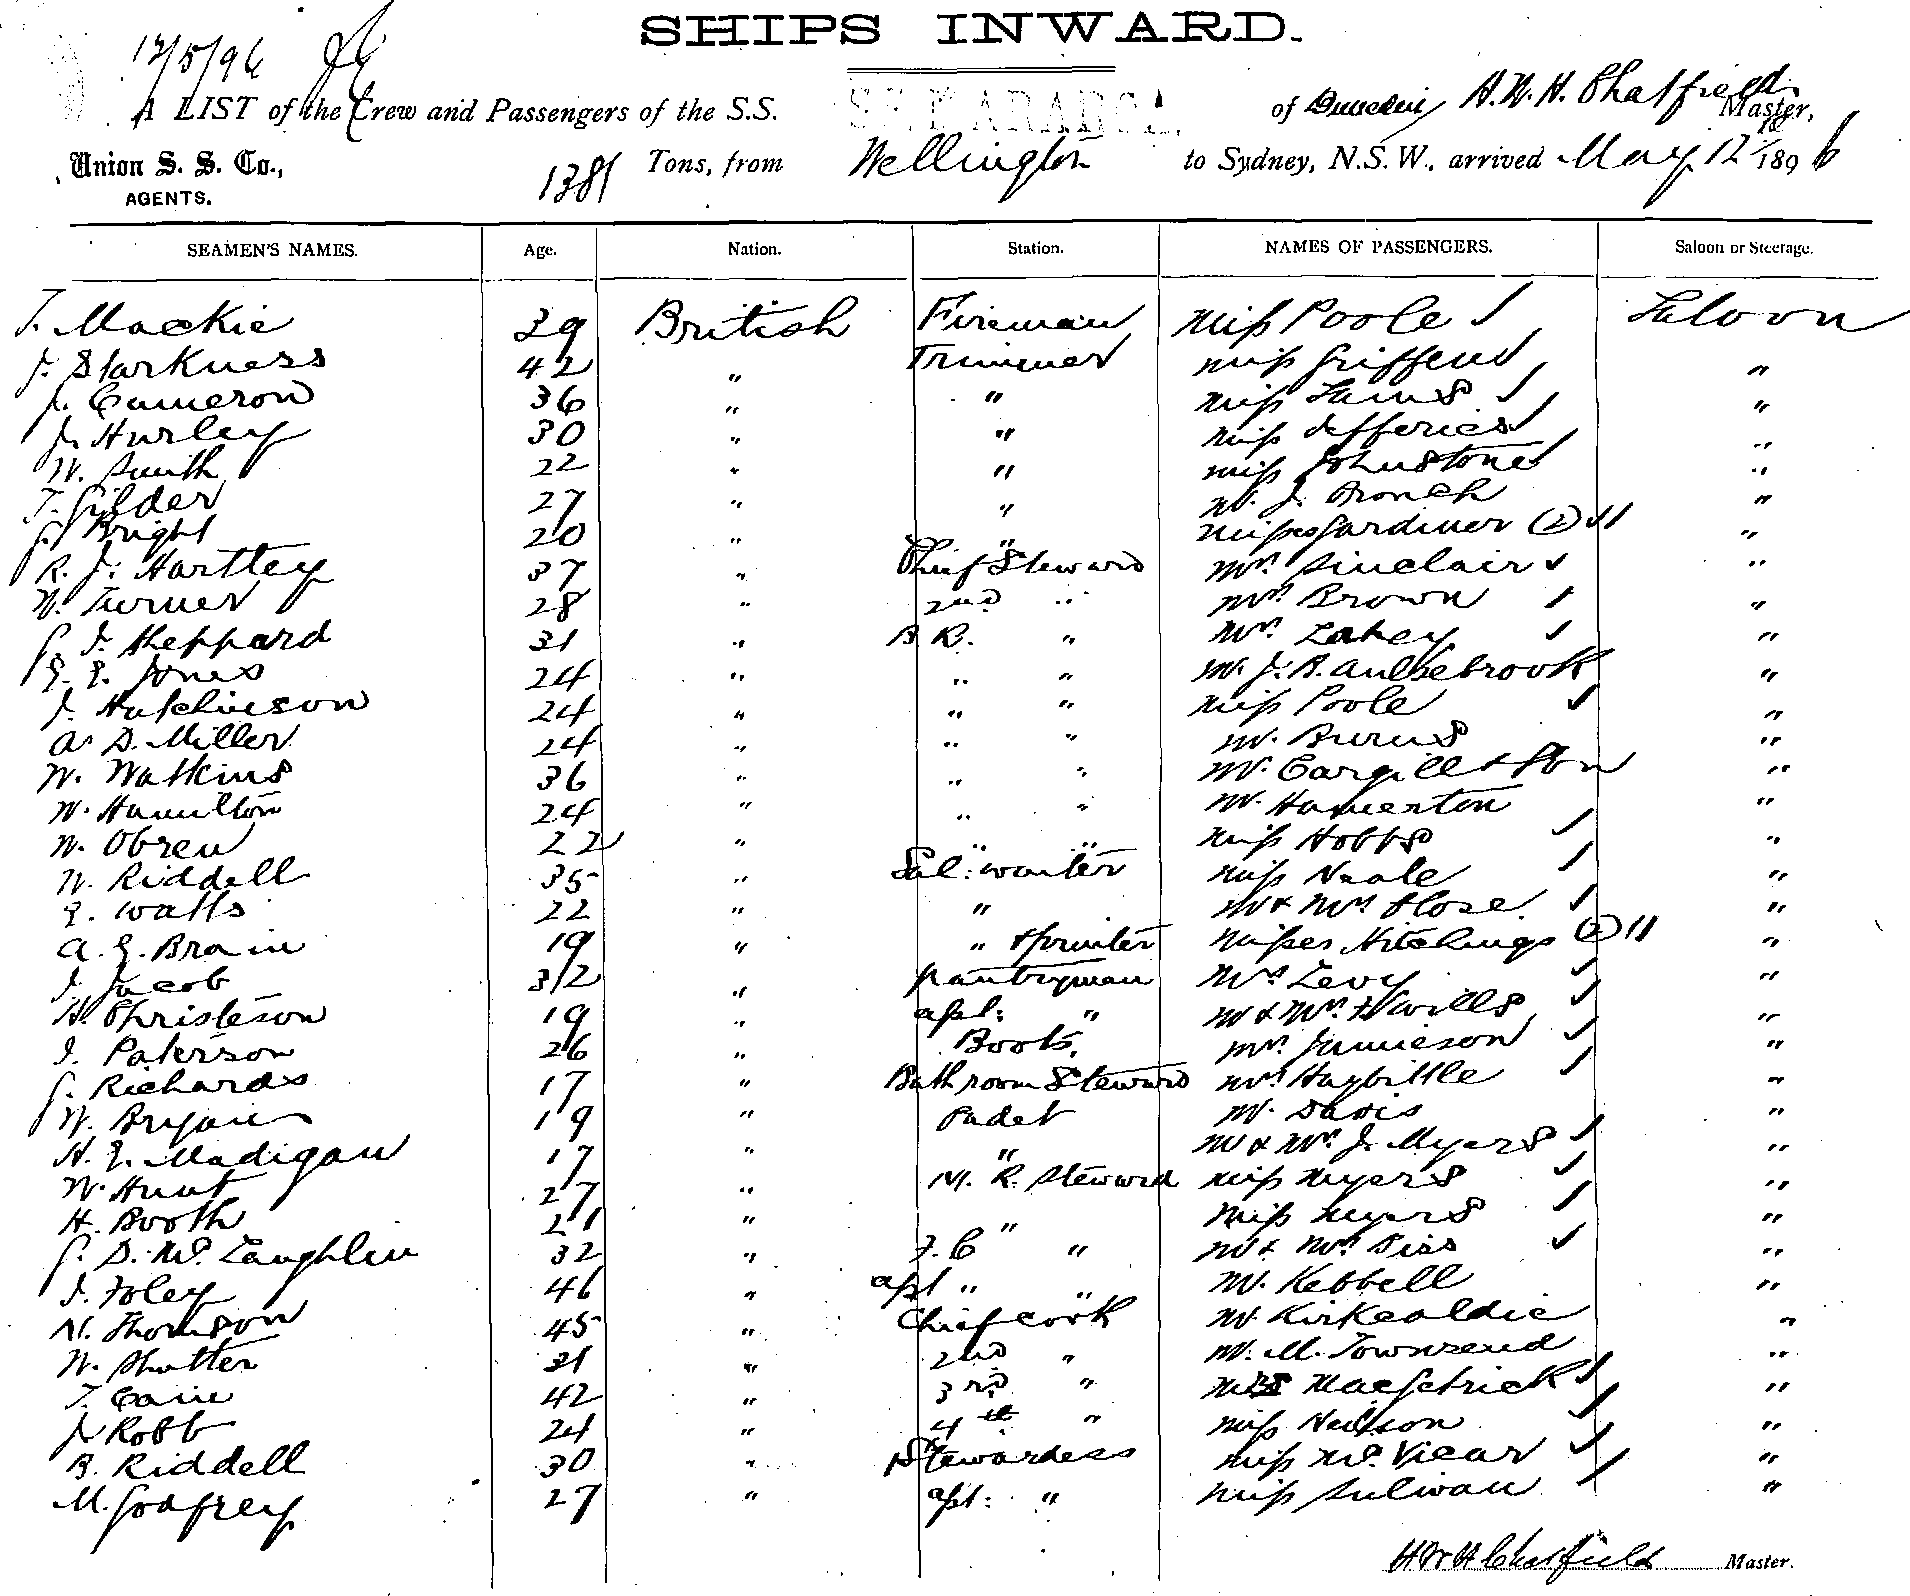 SHIPS INWARD.
12/5/96
A LIST of the Crew and Passengers of the S.S. TARARUA of Dunedin, H.W.H. Chatfield Master,
Union S. S. Co., AGENTS. 1381 Tons, from Wellington to Sydney, N.S.W., arrived May 12th 1896
SEAMEN'S NAMES. Age. Nation. Station. NAMES OF PASSENGERS. Saloon or Steerage.
T. Mackie 39 British Fireman Miss Poole Saloon
J. Starkness 42 " Trimmer Miss Griffen "
J. Cameron 36 " " Miss "
J. Hurley 30 " " Miss Jefferies "
W. Smith 22 " " Miss Johnstone "
T. Gilder 27 " " Mr. J. "
G. Bright 20 " " Misses Gardiner (2) "
R. J. Harttey 37 " Chief Steward Mrs. Sinclair "
W. Turner 28 " 2nd " Mrs Brown "
G. J. Sheppard 31 " B R. " Mrs. Lahey "
G. E. Jones 24 " " " Mr. J. B. Aulsebrook "
J. Hutchinson 24 " " " Miss Poole "
A. D. Miller 24 " " " Mr. Burns "
W. Watkins 36 " " " Mr. Cargill & Son "
W. Hamilton 24 " " " Mr. Hamerton "
W. Obren 22 " " " Miss Hobbs "
W. Riddell 35 " Sal: waiter Miss Neale "
E. Watts 22 " " Mr & Mrs Close "
A. E. Brain 19 " " & printer Misses Hitchings (2) "
J. Jacob 32 " pantryman Mrs Levy "
H. Christeson 19 " asst: " Mr & Mrs H Wills "
J. Paterson 26 " Boots. Mrs. Jamieson "
G. Richards 17 " Bathroom Steward Mrs Haybittle "
W. Bryan 19 " Cadet Mr. Davis "
H. E. Madigan 17 " " Mr & Mrs J. Myers "
W. Hunt 27 " M. R. Steward Miss Myers "
H. Booth 21 " " Miss Myers "
G. D. McLaughlin 32 " F. C " Mr & Mrs "
J. Foley 46 " asst " " Mr. Kebbell "
N. Thomson 45 " Chief cook Mr. Kirkcaldie "
W. Shutter 31 " 2nd " Mr. M. Townsend "
T. Cain 42 " 3rd " "
J. Robb 24 " 4th " Miss Neilson "
B. Riddell 30 " Stewardess Miss McVicar "
M. Godfrey 27 " asst: " Miss Sulivan "
HWHChatfield Master.